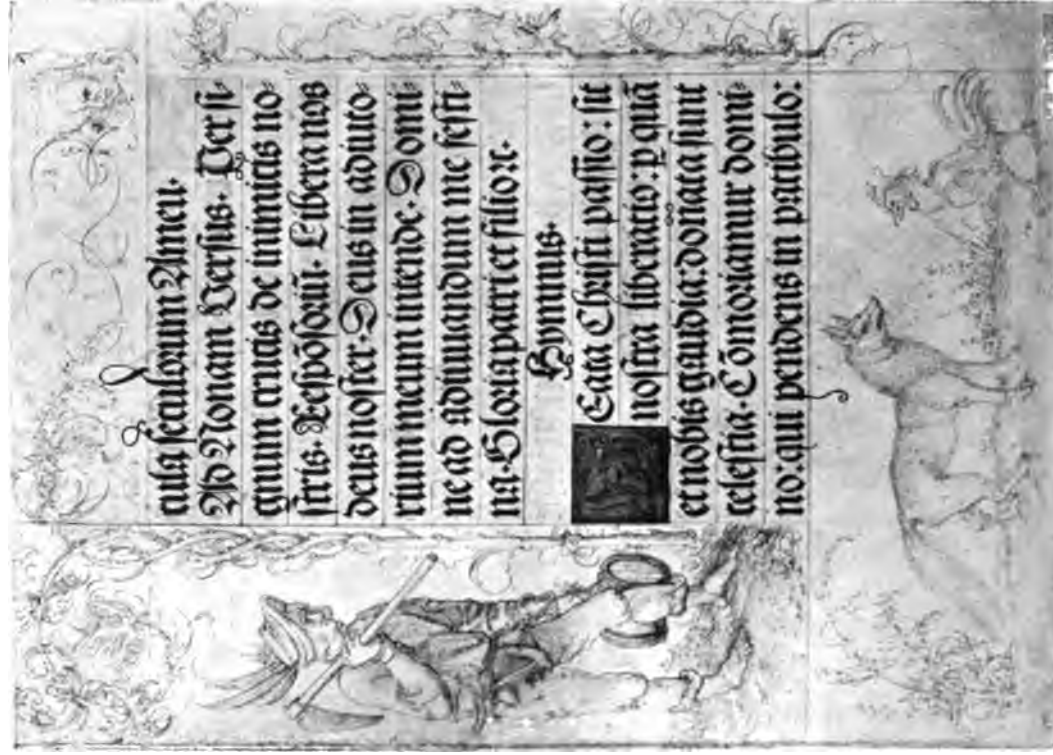 cula seculorum Amen.
Ad Nonam Versus. Per si⸗
gnum crucis de inimicis no⸗
stris. Respōsoriū. Libera nos
deus noster. Deus in adiuto⸗
rium meum intende. Domi⸗
ne ad adiuuandum me festi⸗
na. Gloria patri et filio ꝛc.
Hymnus.
BEata Christi passio: sit
nostra liberatio: ꝑ quā
et nobis gaudia: donata sunt
celestia. Cōmoriamur domi⸗
no: qui pendens in patibulo: